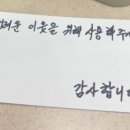 려운 이웃을 위해 사용해주
감사합니